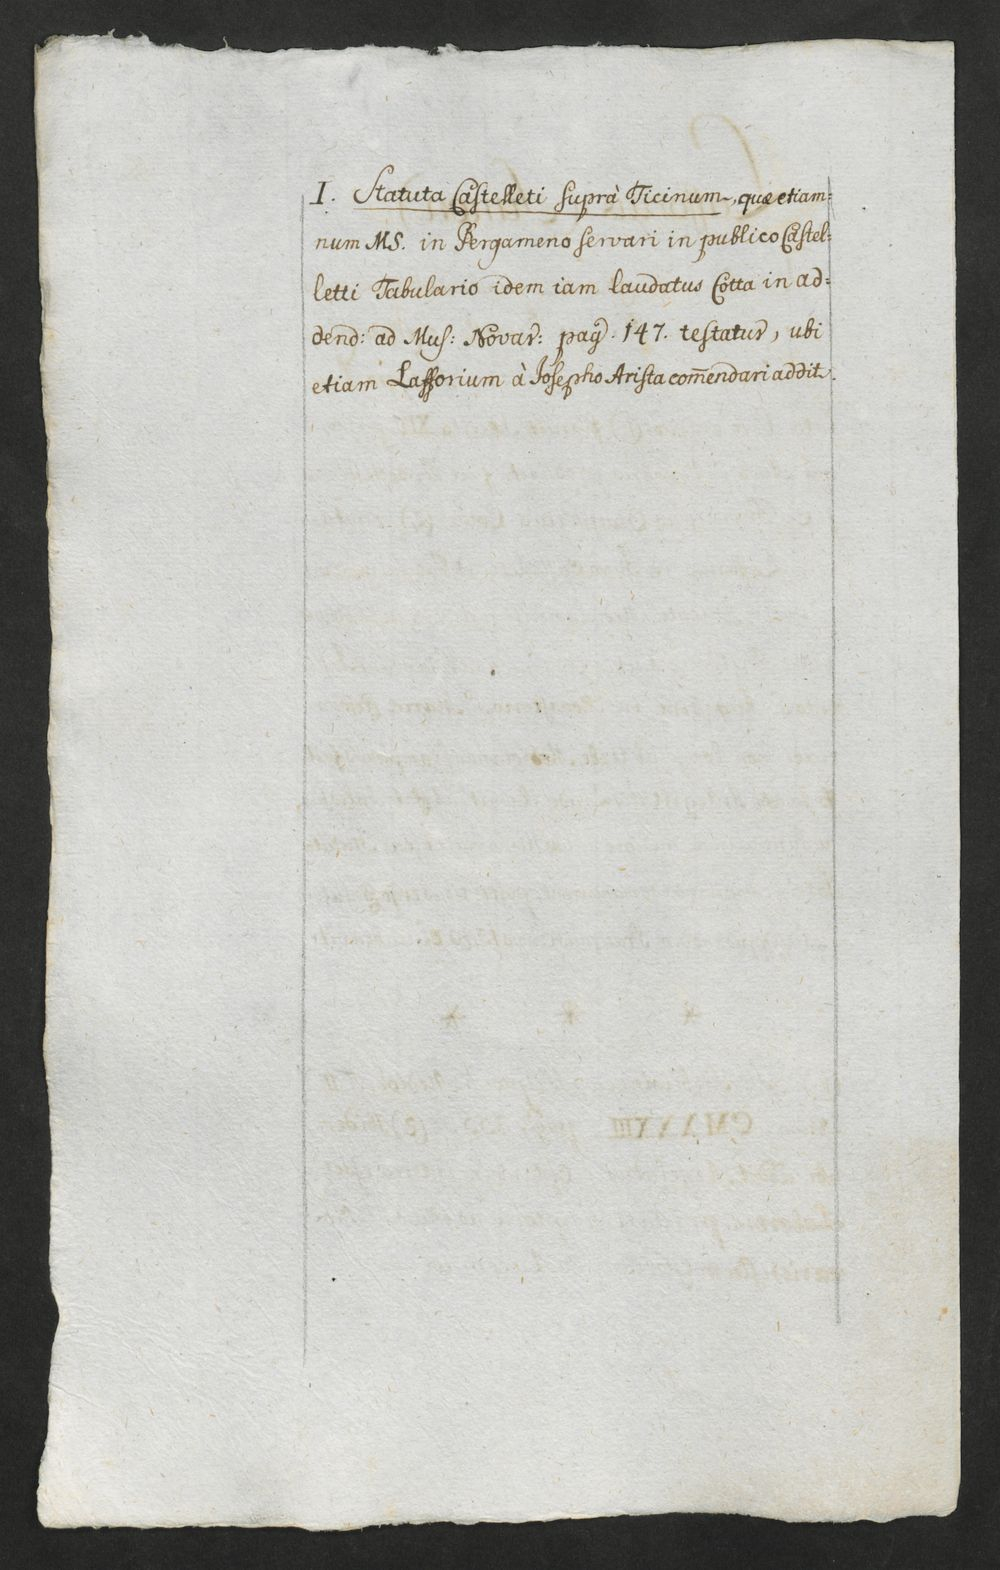 I. Statuta Castelleti suprà Ticinum, quæ etiam=
num MS. in Pergameno servari in publico Castel=
letti Tabulario idem iam laudatus Cotta in ad=
dend: ad Mus: Novar: pag. 147. testatur, ubi
etiam Lafforium à Josepho Arista com̄endari addit.